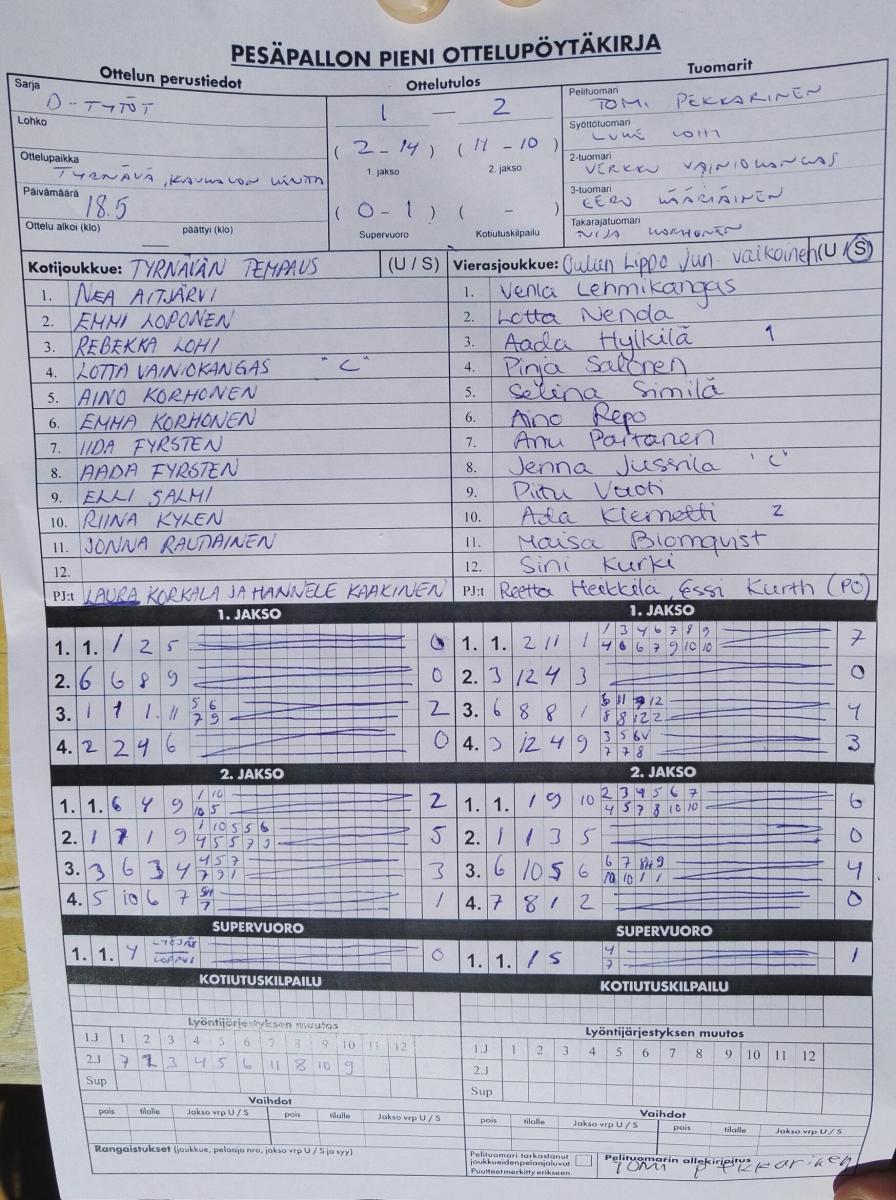 PESÄPALLON PIENI OTTELUPÖYTÄKIRJA
Ottelun perustiedot
Ottelutulos
Tuomarit
Sarja D-TYTÖT
Lohko
Ottelupaikka TYRNÄVÄ,
Päivämäärä 18.5
Ottelu alkoi (klo) päättyi (klo)
1 — 2
( 2 - 14 ) ( 11 - 10 )
1. jakso 2. jakso
( 0 - 1 ) ( - )
Supervuoro Kotiutuskilpailu
Pelituomari TOMI PEKKARINEN
Syöttötuomari
2-tuomari VERKKU VAINIOKANGAS
3-tuomari EERO MÄÄRIÄINEN
Takarajatuomari KORHONEN
Kotijoukkue: TYRNÄVÄN TEMPAUS (U / S)
1. NEA AITJÄRVI
2. EMMI LOPONEN
3. REBEKKA LOHI
4. LOTTA VAINIOKANGAS "C"
5. AINO KORHONEN
6. EMMA KORHONEN
7. IIDA FYRSTEN
8. AADA FYRSTEN
9. ELLI SALMI
10. RIINA KYLEN
11. JONNA RAUTIAINEN
12.
PJ:t LAURA KORKALA JA HANNELE KAAKINEN
Vierasjoukkue: Oulun Lippo Jun. valkoinen (U / S)
1. Venla Lehmikangas
2. Lotta Nenda
3. Aada Hylkilä 1
4. Pinja Salonen
5. Selina Similä
6. Aino Repo
7. Anu Partanen
8. Jenna Jussila 'C'
9. Piitu Vuoti
10. Ada Klemetti 2
11. Maisa Blomqvist
12. Sini Kurki
PJ:t Reetta Heikkilä, Essi Kurth (PO)
1. JAKSO
1. 1. 1 2 5 0
2. 6 6 8 9 0
3. 1 1 1. 11 5 6 7 9 2
4. 2 2 4 6 0
2. JAKSO
1. 1. 6 4 9 1 10 10 5 2
2. 1 7 1 9 1 10 5 5 6 4 5 5 7 9 5
3. 3 6 3 4 4 5 7 7 9 1 3
4. 5 10 6 7 7 1
SUPERVUORO
1. 1. 4 LYÖJÄT LOPPUI 0
KOTIUTUSKILPAILU
Lyöntijärjestyksen muutos
1.J 1 2 3 4 5 6 7 8 9 10 11 12
2.J 7 2 3 4 5 6 11 8 10 9
Sup
Vaihdot
pois tilalle Jakso vrp U / S pois tilalle Jakso vrp U / S
Rangaistukset (joukkue, pelaaja nro, jakso vrp U / S ja syy)
1. JAKSO
1. 1. 2 11 1 1 3 4 6 7 8 9 4 6 6 7 9 10 10 7
2. 3 12 4 3 0
3. 6 8 8 1 8 8 12 2 4
4. 3 12 4 9 3 5 6V 7 7 8 3
2. JAKSO
1. 1. 1 9 10 2 3 4 5 6 7 4 5 7 8 10 10 6
2. 1 1 3 5 0
3. 6 10 5 6 6 7 8 9 10 10 1 1 4
4. 7 8 1 2 0
SUPERVUORO
1. 1. 1 5 4 7 1
KOTIUTUSKILPAILU
Lyöntijärjestyksen muutos
1.J 1 2 3 4 5 6 7 8 9 10 11 12
2.J
Sup
Vaihdot
pois tilalle Jakso vrp U / S pois tilalle Jakso vrp U / S
Pelituomari tarkastanut
joukkueidenpelaajaluvat.
Puutteet merkitty erikseen.
Pelituomarin allekirjoitus
TOMI Pekkarinen